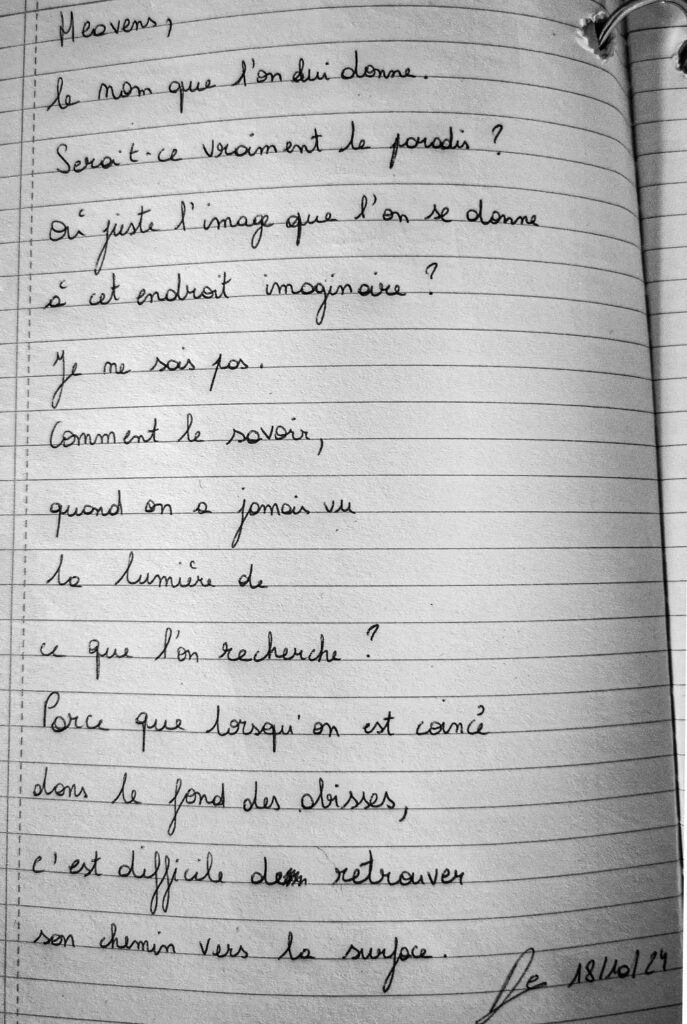 Heavens,
le nom que l'on lui donne.
Serait-ce vraiment le paradis ?
Où juste l'image que l'on se donne
à cet endroit imaginaire ?
Je ne sais pas.
Comment le savoir,
quand on a jamais vu
la lumière de
ce que l'on recherche ?
Parce que lorsqu'on est coincé
dans le fond des abisses,
c'est difficile de retrouver
son chemin vers la surface.
Le 18/10/24